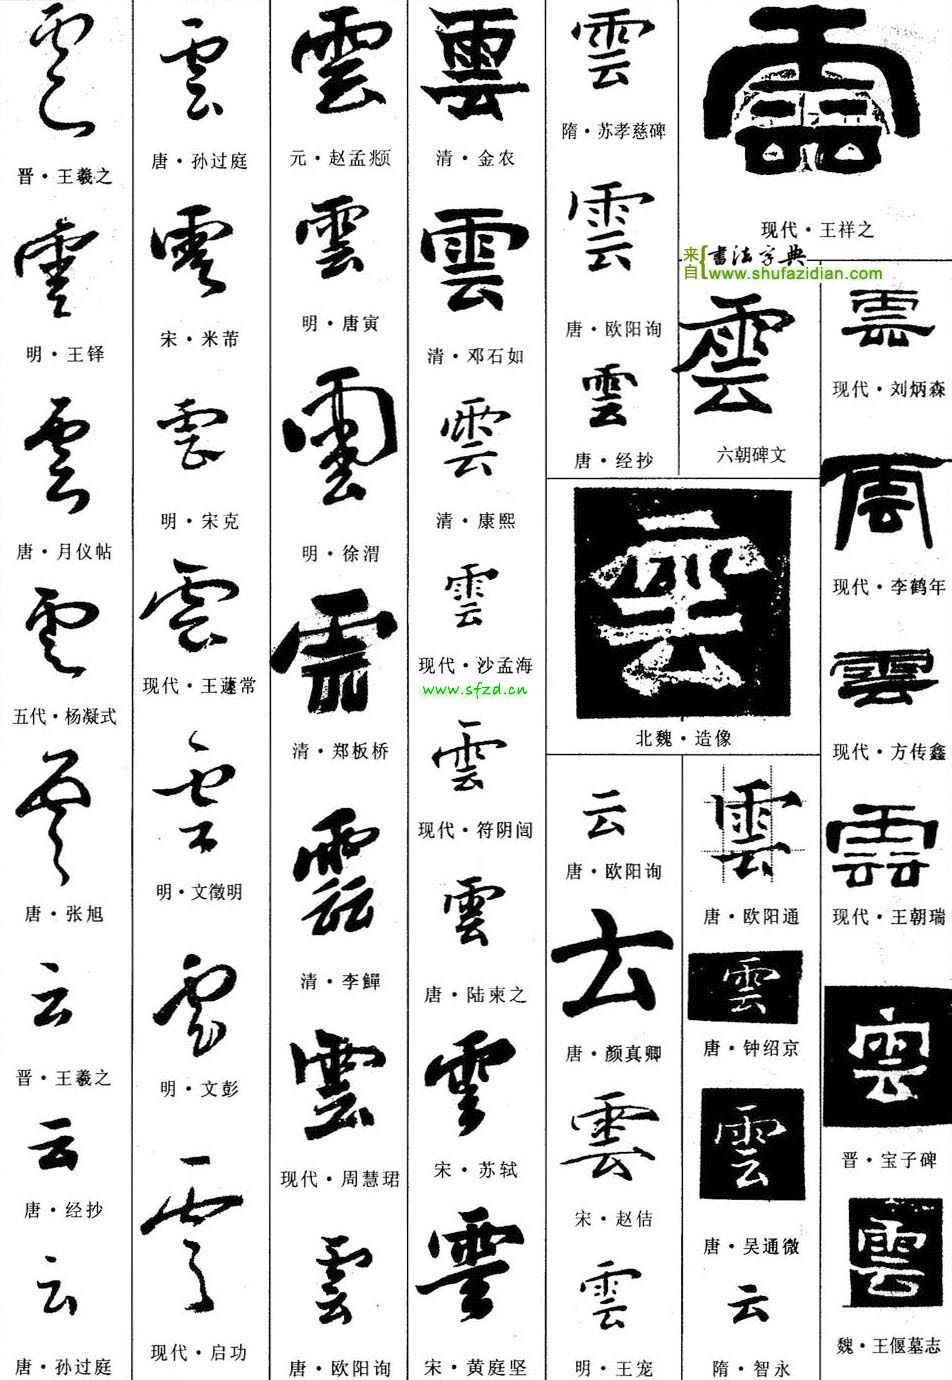 雲
晋·王羲之
雲
明·王铎
雲
唐·月仪帖
雲
五代·杨凝式
雲
唐·张旭
云
晋·王羲之
云
唐·经抄
云
唐·孙过庭
雲
唐·孙过庭
雲
宋·米芾
雲
明·宋克
雲
现代·王蘧常
雲
明·文徵明
雲
明·文彭
雲
现代·启功
雲
元·赵孟頫
雲
明·唐寅
雲
明·徐渭
雲
清·郑板桥
雲
清·李鱓
雲
现代·周慧珺
雲
唐·欧阳询
雲
清·金农
雲
清·邓石如
雲
清·康熙
雲
现代·沙孟海
www.sfzd.cn
雲
现代·符阴闿
雲
唐·陆柬之
雲
宋·苏轼
雲
宋·黄庭坚
雲
隋·苏孝慈碑
雲
唐·欧阳询
雲
唐·经抄
雲
现代·王祥之
来自{书法字典
www.shufazidian.com
雲
六朝碑文
雲
北魏·造像
云
唐·欧阳询
云
唐·颜真卿
雲
宋·赵佶
雲
明·王宠
雲
唐·欧阳通
雲
唐·钟绍京
雲
唐·吴通微
云
隋·智永
雲
现代·刘炳森
雲
现代·李鹤年
雲
现代·方传鑫
雲
现代·王朝瑞
雲
晋·宝子碑
雲
魏·王偃墓志